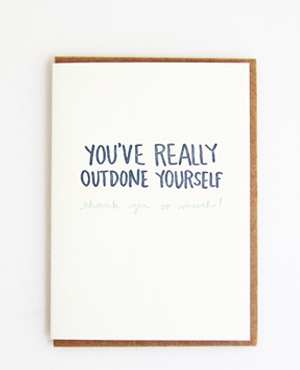 YOU'VE REALLY
OUTDONE YOURSELF
thank you so much!